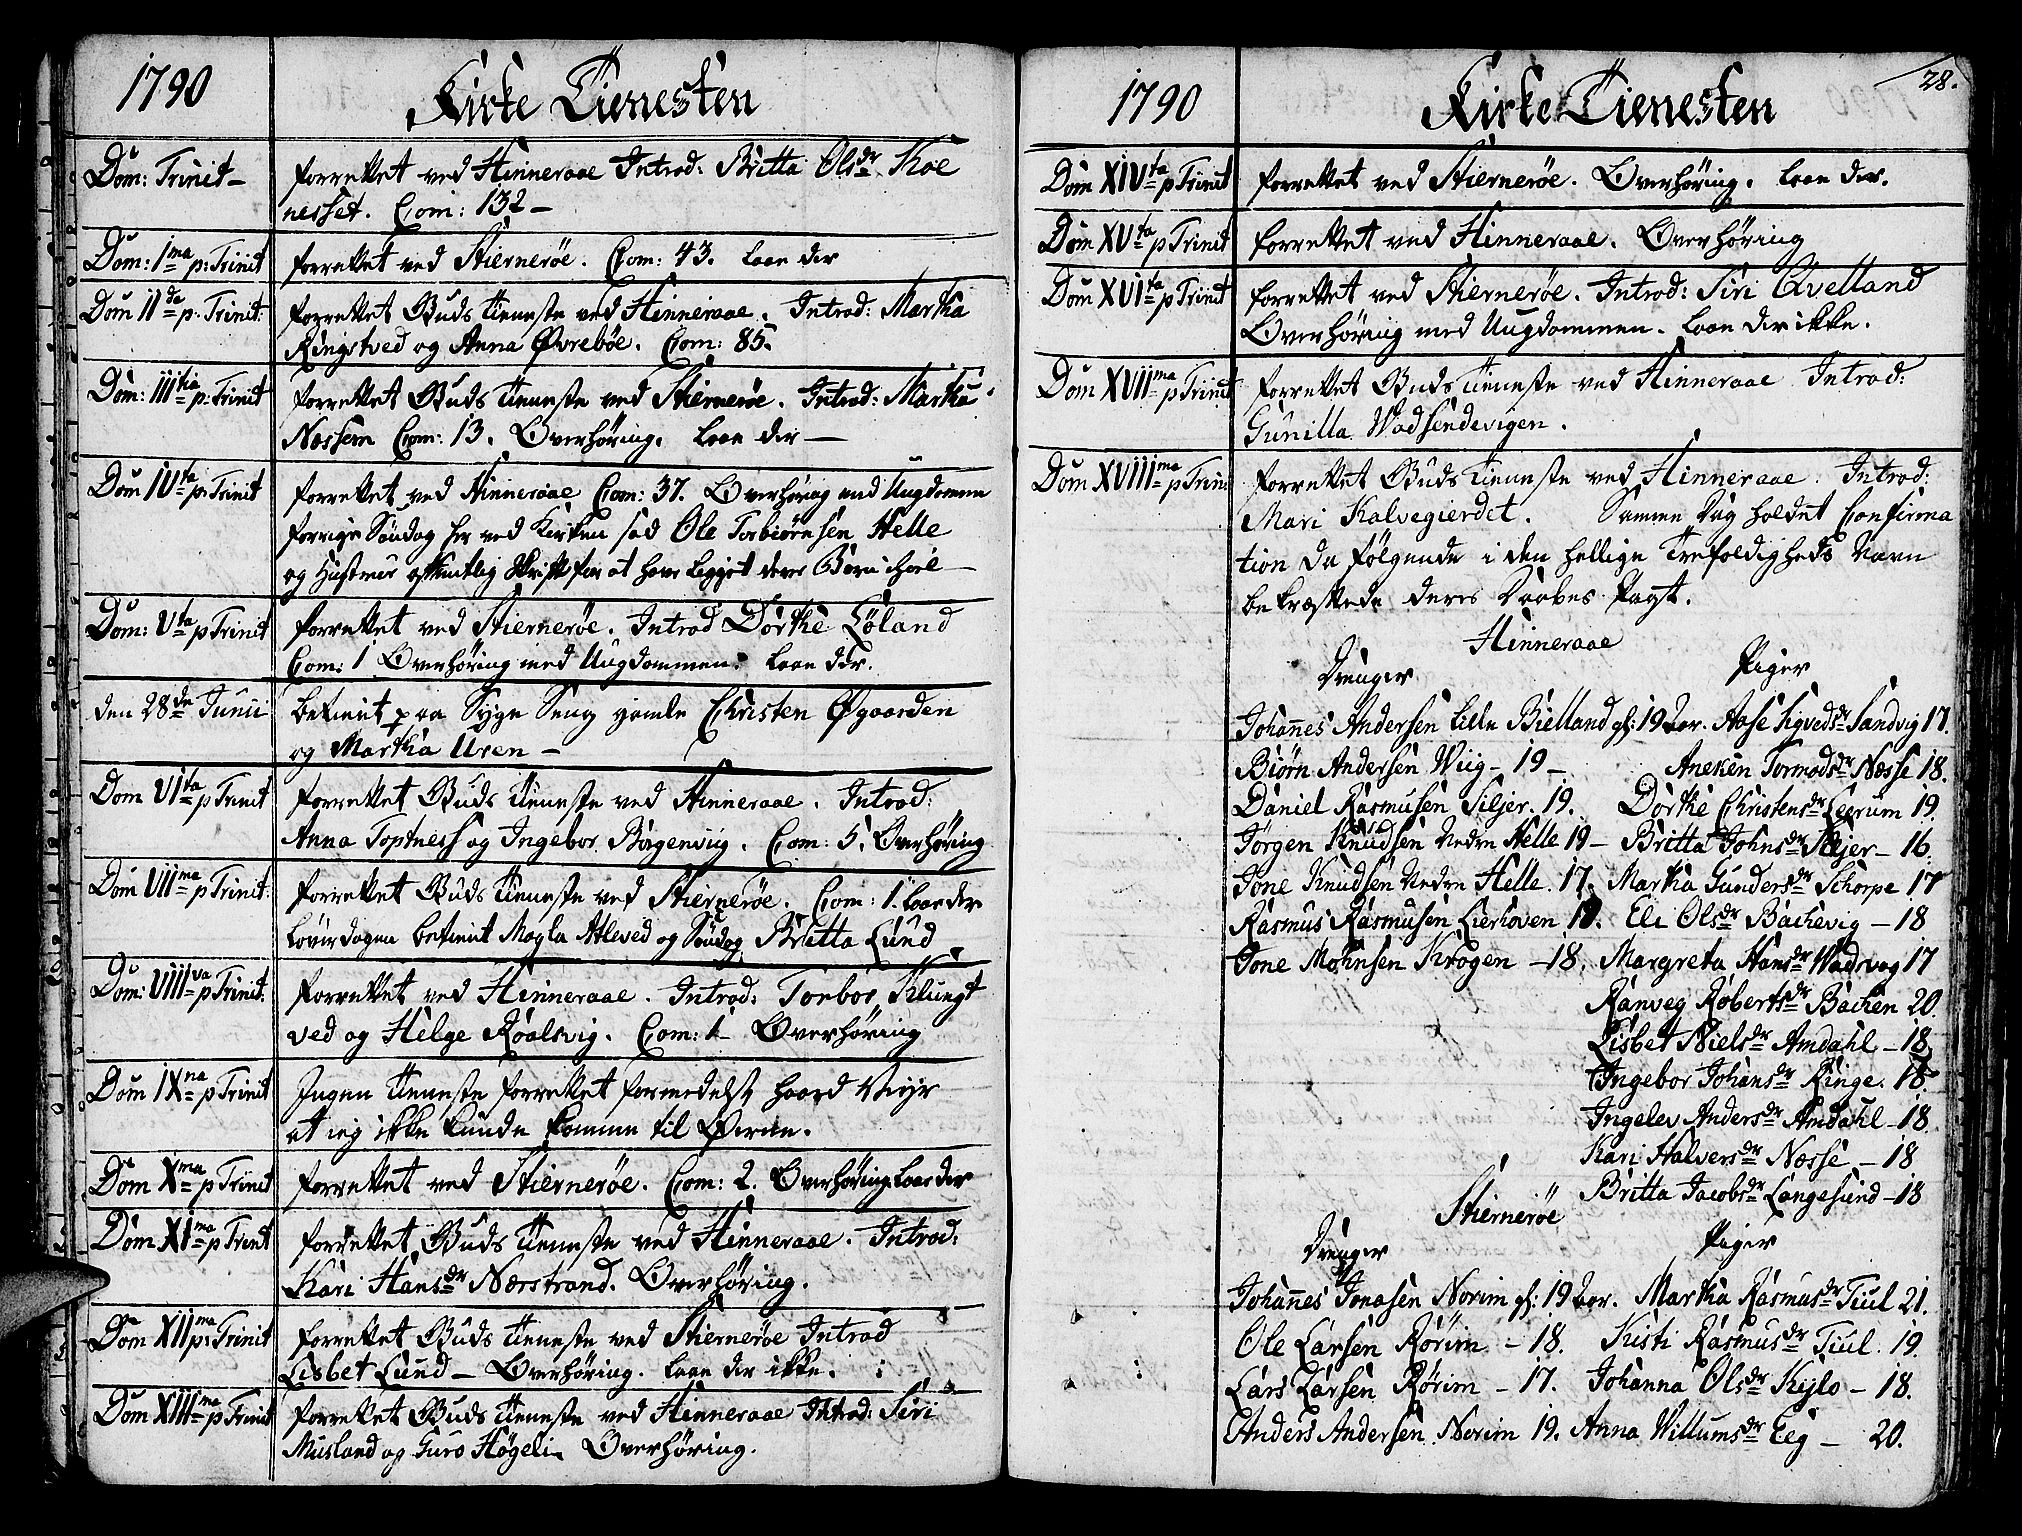 1790 Kirke Tienesten
Dom: Trinit– forrettet ved Hinneraae Introd: Britta Olsdr Koe
nesset. Com: 132 –
Dom: Ima p: Trinit forrettet ved Stiernerøe. Com: 43. laae der
Dom IIda p: Trinit: forrettet Guds Tieneste ved Hinneraae. Introd: Martha
Ringstved og Anna Øvrebøe. Com: 85.
Dom: IIItia p: Trinit forrettet Guds Tieneste ved Stiernerøe. Introd: Martha
Nessem Com: 13. Overhøring. laae der –
Dom IVta p: Trinit forrettet ved Hinneraae Com: 37. Overhøring med Ungdommen
forrige Søndag her ved Kirken sad Ole Torbiørnsen Helle
og Hustrue offentlig Skrifte for at have ligget deres Barn ihiel –
Dom: Vta p Trinit forrettet ved Stiernerøe. Introd Dorthe Løland
Com: 1 Overhøring med Ungdommen. laae der.
den 28de Junii betient paa Syge Seng gamle Christen Øgaarden
og Martha Uren –
Dom VIta p Trinit forrettet Guds Tieneste ved Hinneraae. Introd:
Anna Toptness og Ingebor Borgenviig. Com: 5. Overhøring
Dom VIIma p Trinit: forrettet Guds Tieneste ved Stiernerøe. Com: 1. laae der
Løverdagen betient Magla Atleved og Søndag Britta Lund
Dom: VIIIva p Trinit: forrettet ved Hinneraae. Introd: Torbor Klungt
ved og Helge Roalsvig. Com: 1 – Overhøring
Dom IXna p Trinit Ingen Tieneste forrettet formedelst haard Veyr
at ieg ikke kunde komme til Øerne.
Dom Xma p Trinit forrettet ved Stiernerøe. Com: 2. Overhøring laae der
Dom XIma p Trinit forrettet Guds Tieneste ved Hinneraae. Introd:
Kari Hansdr Nærstrand. Overhøring.
Dom XIIma p: Trinit forrettet Guds Tieneste ved Stiernerøe Introd
Lisbet Lund – Overhøring. laae der ikke.
Dom XIIIma p Trinit forrettet Guds Tieneste ved Hinneraae Introd: Siri
Musland og Guro Høgeli – Overhøring.
1790 Kirke Tienesten 28.
Dom XIVta p Trinit forrettet ved Stiernerøe. Overhøring. laae der.
Dom XVta p Trinit forrettet ved Hinneraae. Overhøring
Dom XVIta p Trinit forrettet ved Stiernerøe. Introd: Siri Qvelland
Overhøring med Ungdommen. laae der ikke.
Dom XVIIma p Trinit forrettet Guds Tieneste ved Hinneraae Introd:
Gunilla Wadsendevigen.
Dom XVIIIma p Trin: forrettet Guds Tieneste ved Hinneraae: Introd:
Mari Kalvegierdet. Samme Dag holdet Confirma
tion da følgende i den hellige Trefoldigheds Navn
bekræftede deres Daabes Pagt.
Hinneraae
Drenger Piger
Johannes Andersen lille Bielland gl: 19 aar. Aase Sigvedsdr Sandvig 17.
Biørn Andersen Wiig – 19 – Aneken Tormodsdr Næsse 18.
Daniel Rasmusen Siljer. 19. Dorthe Christensdr Leerum 19.
Jørgen Knudsen Nedre Helle 19 – Britta Johnsdr Skejer – 16.
Jone Knudsen Nedre Helle. 17. Martha Gundersdr Schorpe 17
Rasmus Rasmusen Lierhoven Eli Olsdr Bachevig – 18
Jone Mohnsen Krogen – 18. Margreta Hansdr Wadsvog 17
Ranveg Robertsdr Bachen 20.
Lisbet Nielsdr Amdahl – 18
Ingebor Johansdr Ringe.
Ingelev Andersdr Amdahl – 18
Kari Halversdr Næsse – 18
Britta Jacobsdr Langesund – 18
Stiernerøe
Drenger Piger
Johannes Jonasen Norim gl: 19 aar. Martha Rasmusdr Tuul 21.
Ole Larsen Rørim – 18. Kisti Rasmusdr Tuul. 19.
Lars Larsen Rørim – 17. Johanna Olsdr Kiylo – 18.
Anders Andersen Norim 19. Anna Willumsdr Eeg – 20.